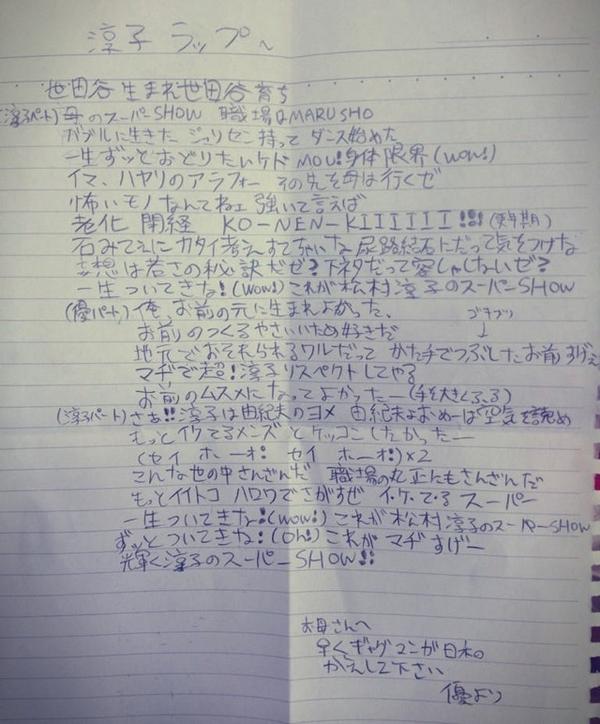 淳子 ラップ〜
世田谷生まれ世田谷育ち
(淳子パート) 母のスーパーSHOW 職場はMARUSHO
バブルに生きた ジュリセン持って ダンス始めた
一生ずッとおどりたいケド MOU!身体限界(wow!)
イマ、ハヤリのアラフォー その先を母は行くぜ
怖いモノなんてねェ 強いて言えば
老化 閉経 KO-NEN-KIIIIIII!!! (更年期)
石みてえにカタイ考えすてちゃいな 尿路結石にだって気をつけな
妄想は若さの秘訣だぜ?下ネタだって愛しゃしないぜ?
一生ついてきな!(wow!)これが松村淳子のスーパーSHOW
(優パート) 俺、お前の元に生まれよかった、
お前のつくるやさいいため好きだ
ゴキブリ
↓
地元でおそれられるワルだって かた手でつぶしたお前すげぇ
マヂで超!淳子リスペクトしてやる
お前のムスメになってよかったー(手を大きくふる)
(淳子パート) さぁ!!淳子は由紀夫のヨメ 由紀夫よおめーは空気を読め
もっとイケてるメンズとケッコンしたかったー
(セイ ホーオ! セイ ホーオ!)×2
こんな世の中さんざんだ 職場の丸正にもさんざんだ
もっとイイトコ ハロワでさがすぜ イケてるスーパー
一生ついてきな!(wow!)これが松村淳子のスーパーSHOW
ずッとついてきな!(Oh!)これが マヂすげー
輝く淳子のスーパーSHOW!!
お母さんへ
早くギャグマンガ日和
かえして下さい
優より